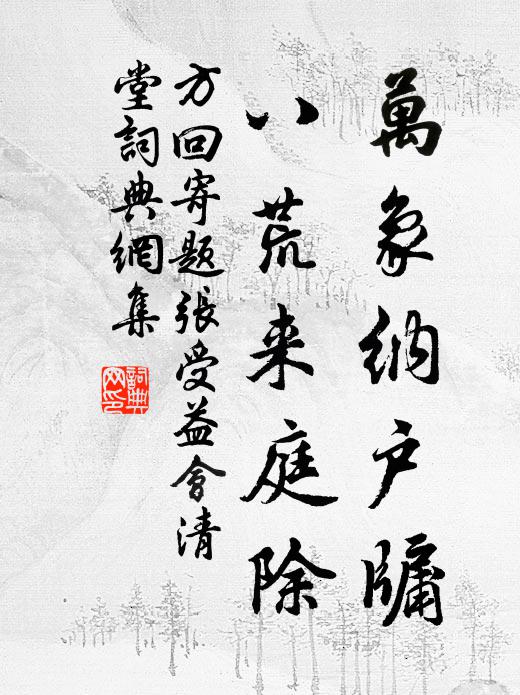 萬象納户牖
八荒来庭除
方回寄题張受益會清
堂詞典網集
詞典
网印